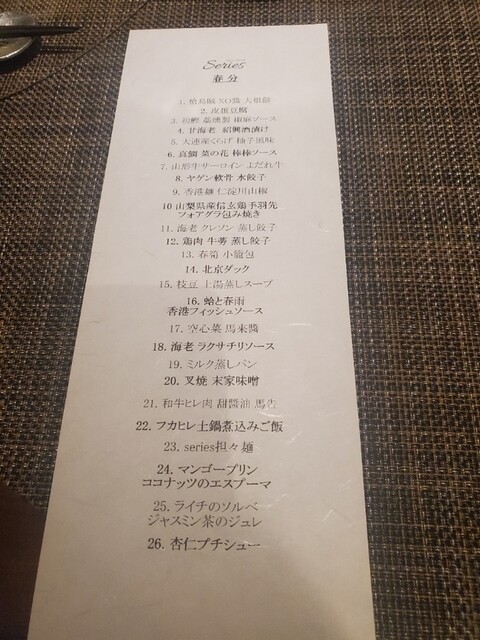 Series
春分
1. 槍烏賊 XO醤 大根餅
2. 皮蛋豆腐
3. 初鰹 藁燻製 椒麻ソース
4. 甘海老 紹興酒漬け
5. 大連産くらげ 柚子風味
6. 真鯛 菜の花 棒棒ソース
7. 山形牛サーロイン よだれ牛
8. ヤゲン軟骨 水餃子
9. 香港麺 仁淀川山椒
10. 山梨県産信玄鶏手羽先
フォアグラ包み焼き
11. 海老 クレソン 蒸し餃子
12. 鶏肉 牛蒡 蒸し餃子
13. 春筍 小籠包
14. 北京ダック
15. 枝豆 上湯蒸しスープ
16. 蛤と春雨
香港フィッシュソース
17. 空心菜 馬来醬
18. 海老 ラクサチリソース
19. ミルク蒸しパン
20. 叉焼 末家味噌
21. 和牛ヒレ肉 甜醬油 馬告
22. フカヒレ土鍋煮込みご飯
23. series担々麺
24. マンゴープリン
ココナッツのエスプーマ
25. ライチのソルベ
ジャスミン茶のジュレ
26. 杏仁プチシュー